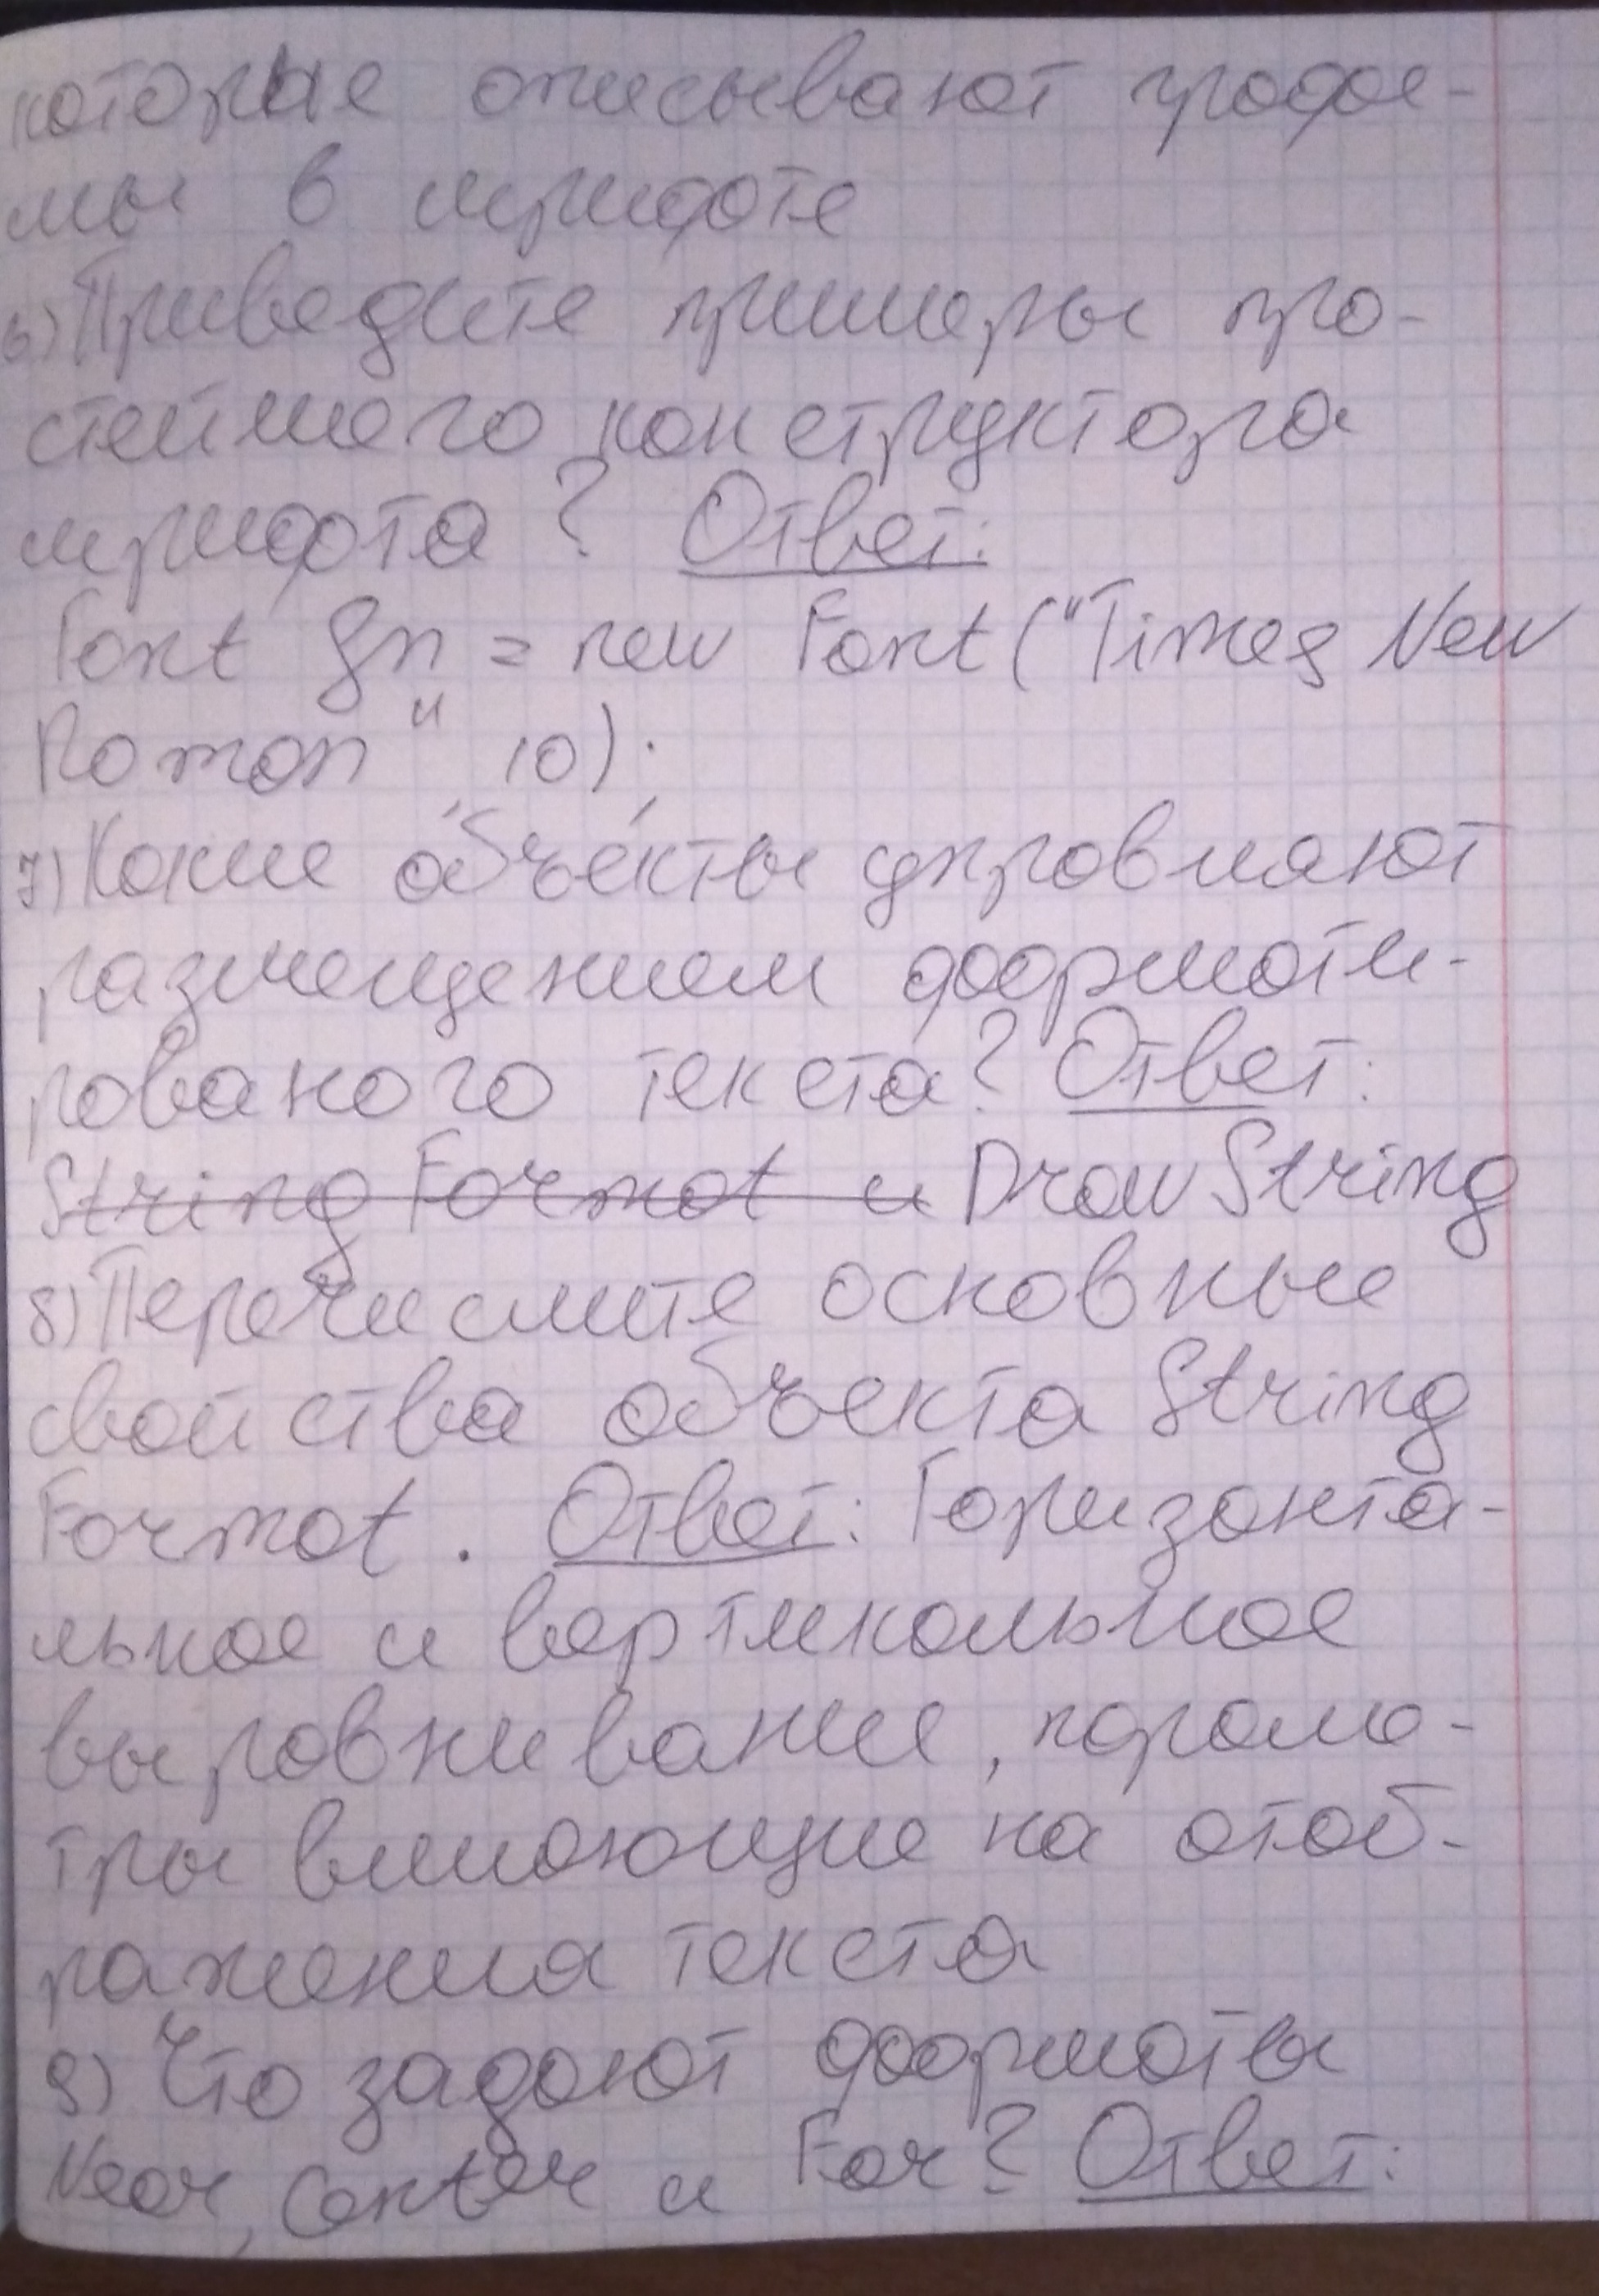 которые описывают графе-
мы в шрифте
6) Приведите примеры про-
стейшего конструктора
шрифта? Ответ:
Font fn = new Font ("Times New
Roman" 10);
7) Какие объекты управляют
размещением формати-
рованого текста? Ответ:
String Format и Draw String
8) Перечислите основные
свойства объекта String
Format. Ответ: Горизонта-
льное и вертикальное
выравнивание, параме-
тры влияющие на отоб-
ражения текста
9) Что задают форматы
Near, Center и Far? Ответ: